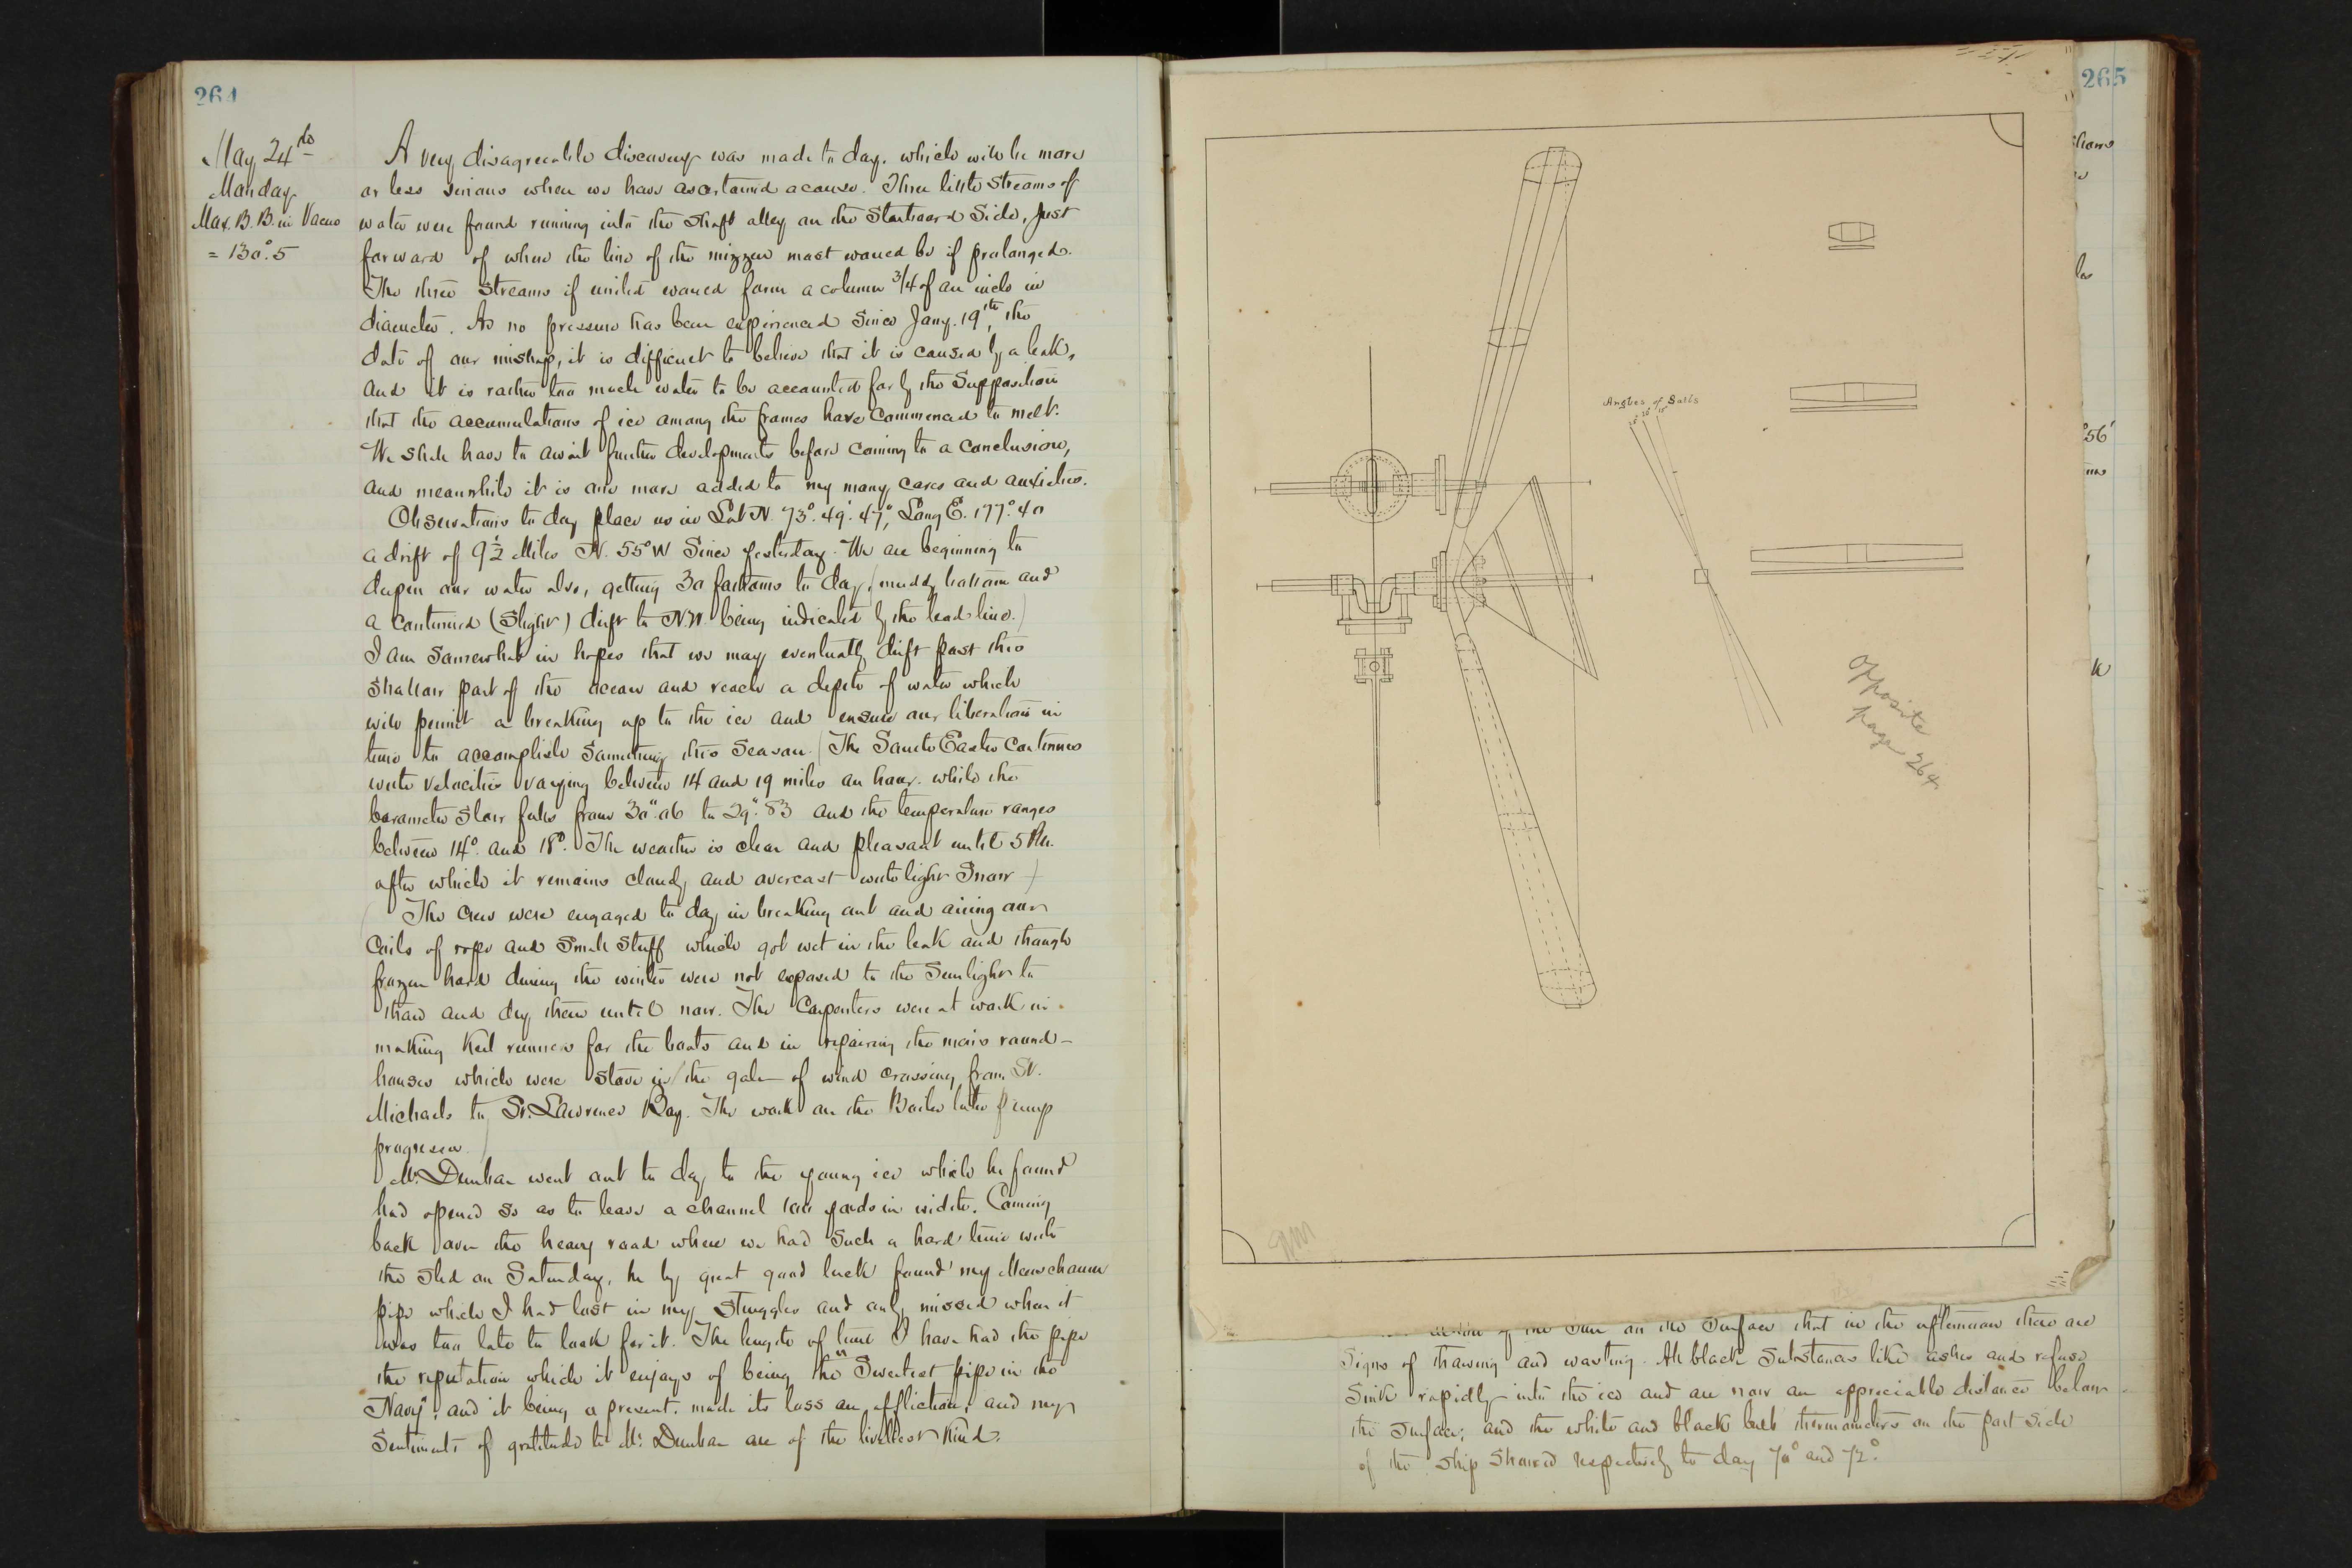 264
May 24th
Monday
Max. B. B. in Vacuo
= 130°.5
A very disagreeable discovery was made to day, which will be more
or less serious when we have ascertained a cause. Three little streams of
water were found running into the shaft alley on the Starboard Side, just
forward of where the line of the mizzen mast would be if prolonged.
The three streams if united would form a column 3/4 of an inch in
diameter. As no pressure has been experienced since Jany. 19th, the
date of our mishap, it is difficult to believe that it is caused by a leak,
and it is rather too much water to be accounted for by the supposition
that the accumulations of ice among the frames have commenced to melt.
We shall have to await further developments before coming to a conclusion,
and meanwhile it is one more added to my many cares and anxieties.
Observations to day place us in Lat N. 73°. 49'. 47", Long E. 177°. 40
a drift of 9 1/2 Miles N. 55° W since yesterday. We are beginning to
deepen our water also, getting 30 fathoms to day, (muddy bottom and
a continued (slight) drift to NW. being indicated by the lead line.)
I am somewhat in hopes that we may eventually drift past this
shallow part of the ocean and reach a depth of water which
will permit a breaking up to the ice and ensure our liberation in
time to accomplish something this season. (The South Easter continues
with velocities varying between 14 and 19 miles an hour, while the
barometer slow falls from 30".06 to 29".83 and the temperature ranges
between 14°. and 18°. The weather is clear and pleasant until 5 PM.
after which it remains cloudy and overcast with light Snow)
The crew were engaged to day in breaking out and airing our
coils of rope and small stuff which got wet in the leak and though
frozen hard during the winter were not exposed to the sunlight to
thaw and dry them until now. The Carpenters were at work in
making Keel runners for the boats and in repairing the main round-
houses which were stove in the gale of wind crossing from St.
Michaels to St. Lawrence Bay. The work on the Boiler later pump
progresses.
Mr. Dunbar went out to day to the young ice which he found
had opened so as to leave a channel 100 yards in width. Coming
back over the heavy road where we had such a hard time with
the sled on Saturday, he by great good luck found my Meerschaum
pipe which I had lost in my struggles and only missed when it
was too late to look for it. The length of time I have had the pipe
the reputation which it enjoys of being the "Sweetest pipe in the
Navy", and it being a present, made its loss an affliction, and my
sentiments of gratitude to Mr. Dunbar are of the liveliest kind.
265
56'
Angles of Sails
opposite
page 264
of the Sun on the surface that in the afternoon there are
signs of thawing and wasting. All black substances like ashes and refuse
sink rapidly into the ice and are now an appreciable distance below
the surface; and the white and black bulb thermometers on the port side
of the ship showed respectively to day 70° and 72°.